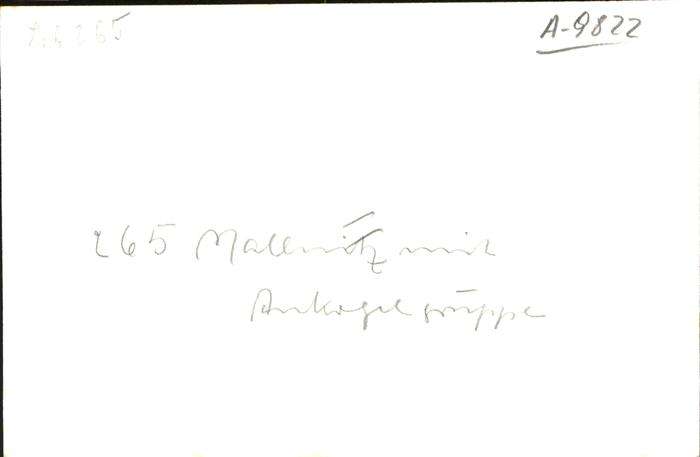 A-9822
265 Mallnitz mit
Ankogelgruppe